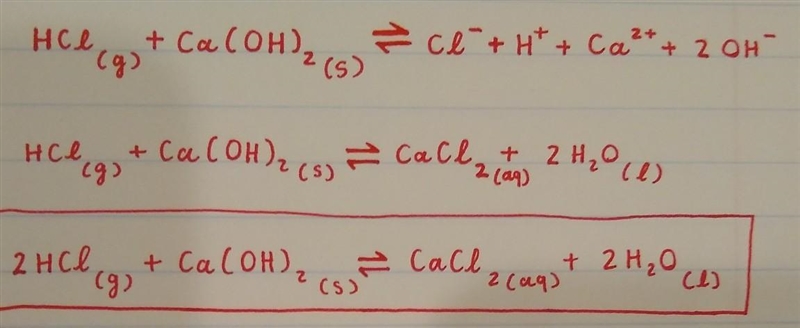 HCl(g) + Ca(OH)₂(s) ⇌ Cl⁻ + H⁺ + Ca²⁺ + 2 OH⁻
HCl(g) + Ca(OH)₂(s) ⇌ CaCl₂(aq) + 2 H₂O(l)
2 HCl(g) + Ca(OH)₂(s) ⇌ CaCl₂(aq) + 2 H₂O(l)